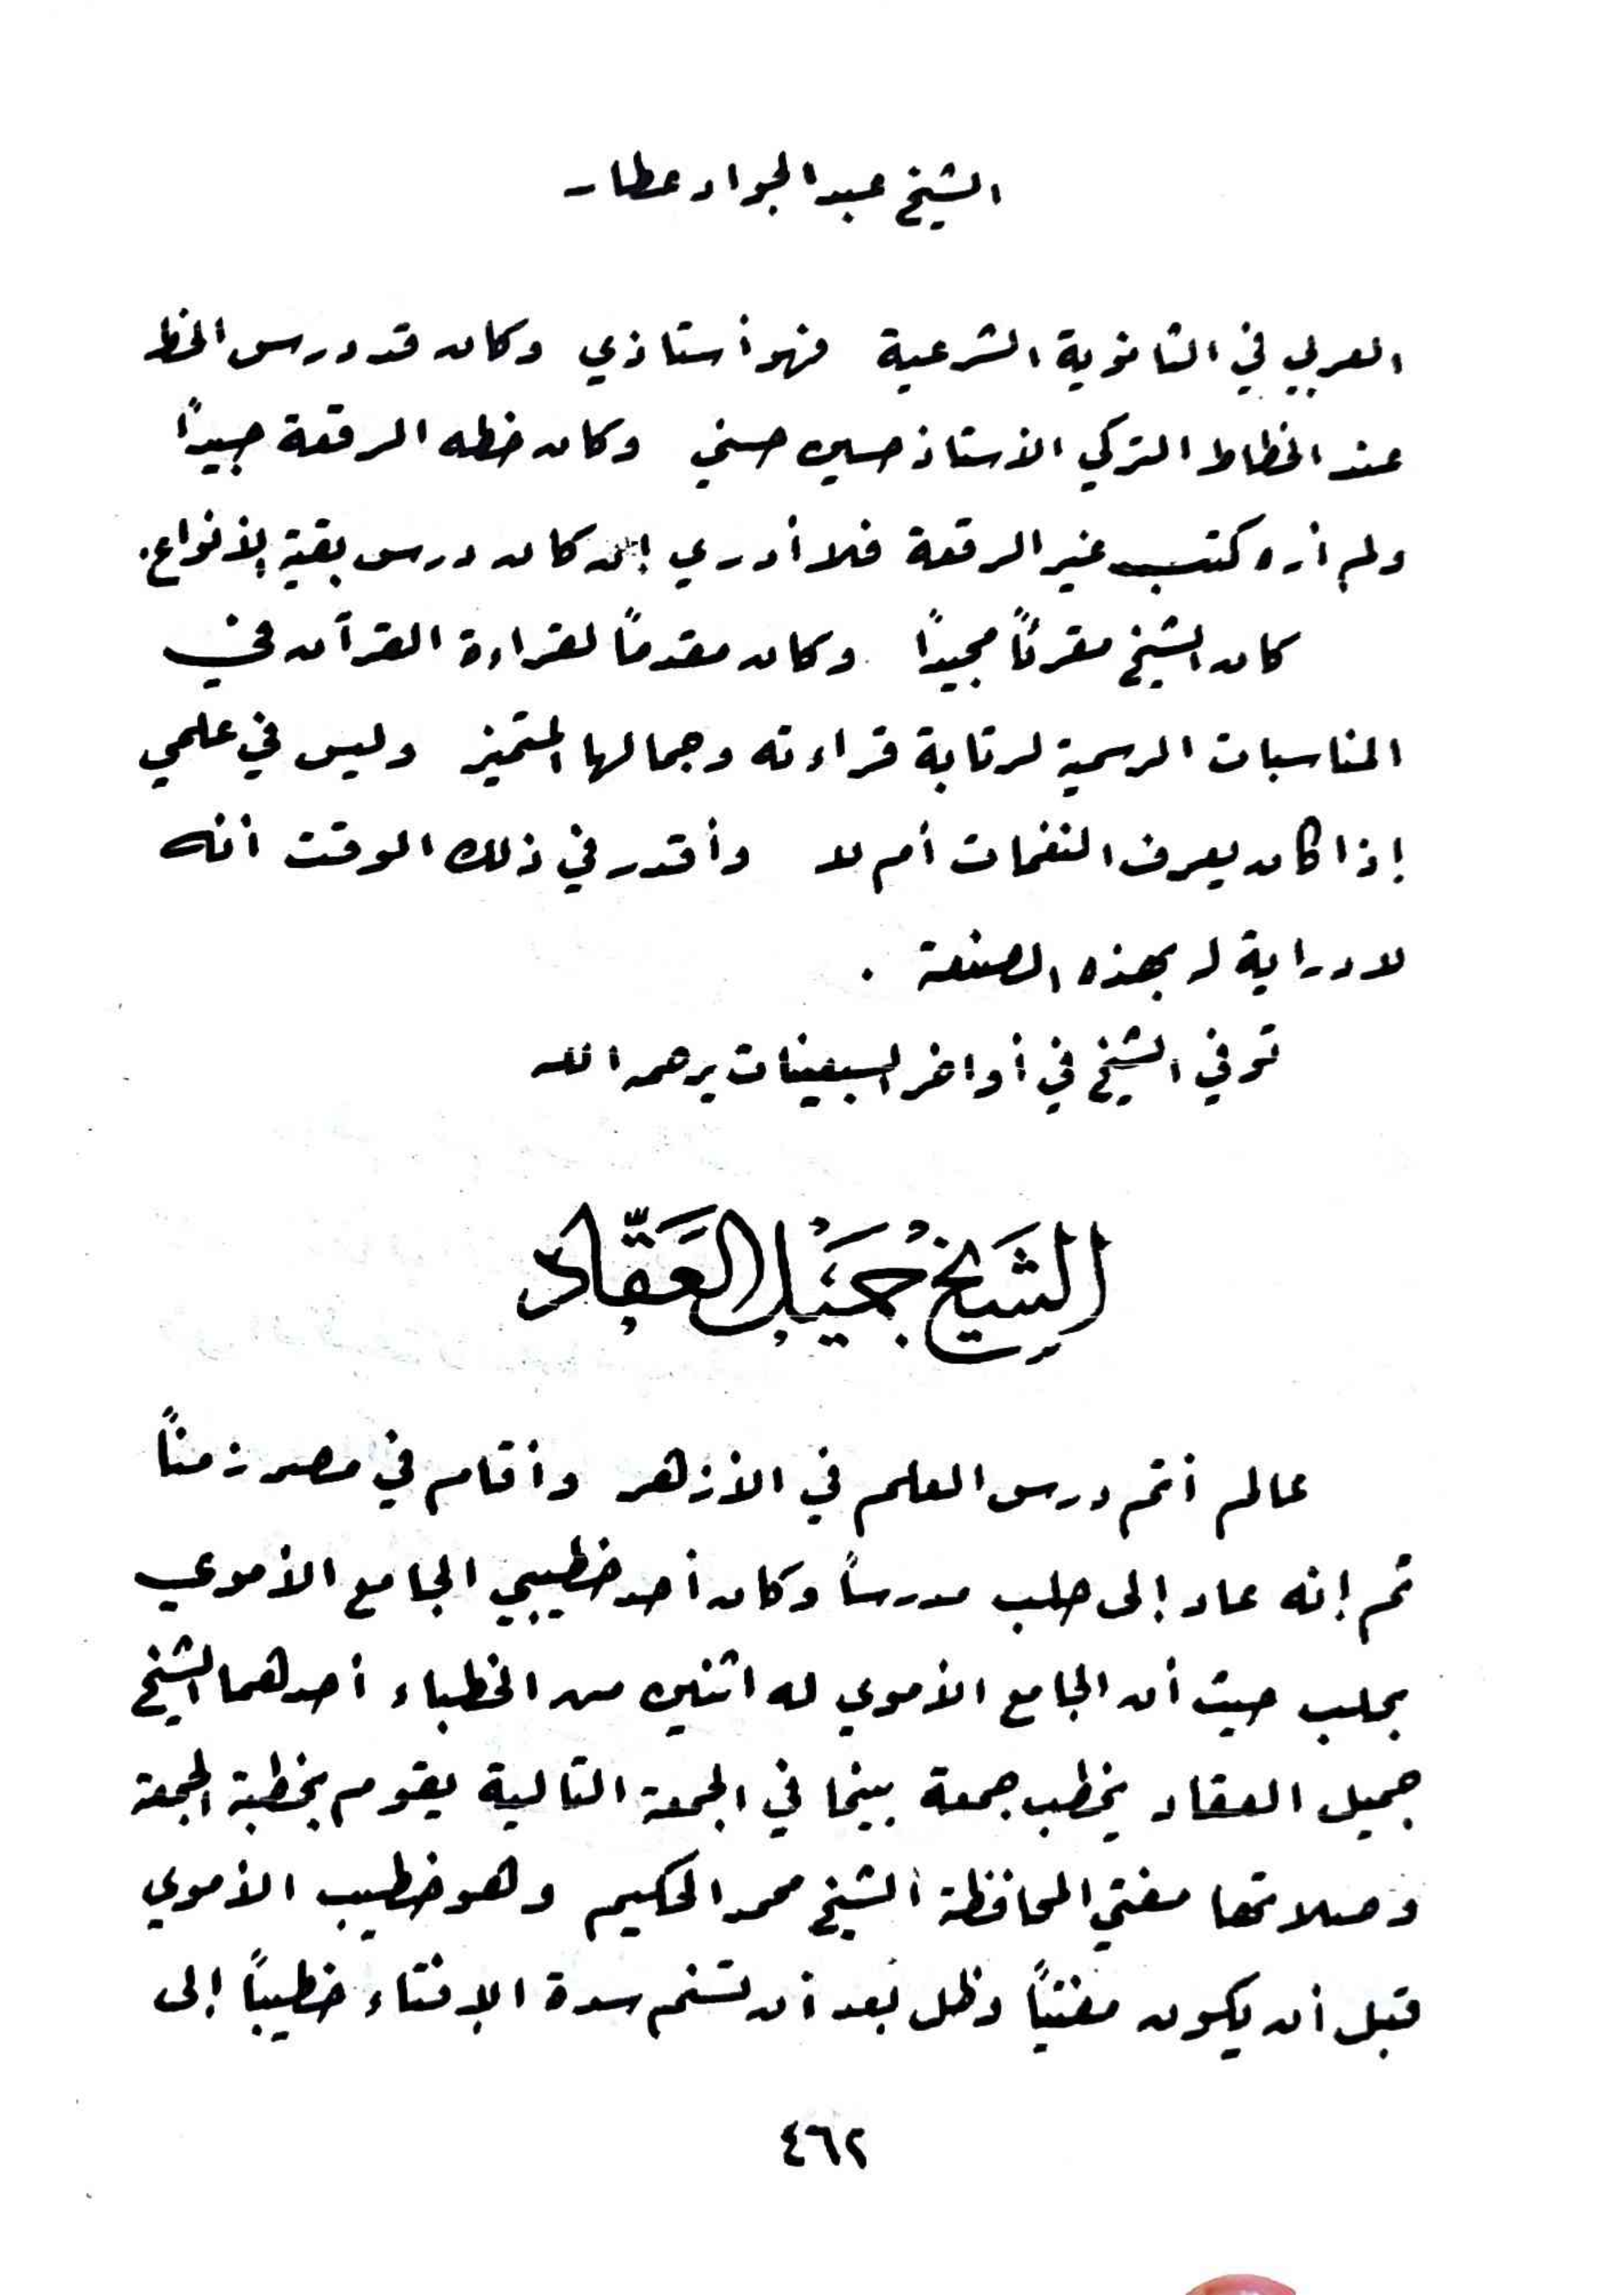 الشيخ عبد الجواد عطار
العربي في الثانوية الشرعية فهو أستاذي وكان قد درس الخط
عند الخطاط التركي الأستاذ حسين حسني وكان خطه الرقعة جيداً
ولم أره كتب غير الرقعة فلا أدري إن كان درس بقية الأنواع.
كان الشيخ مقرئاً مجيداً وكان مقدماً لقراءة القرآن في
المناسبات الرسمية لرتابة قراءته وجمالها المتميز وليس في علمي
إذا كان يعرف النغمات أم لا وأقدر في ذلك الوقت أنه
لا دراية له بهذه الصنعة .
توفي الشيخ في أواخر السبعينات يرحمه الله
الشَيخ جُمَيْل العَقَّاد
عالم أتم درس العلم في الأزهر وأقام في مصر زمناً
ثم إنه عاد إلى حلب مدرساً وكان أحد خطيبي الجامع الأموي
بحلب حيث أن الجامع الأموي له اثنين من الخطباء أحدهما الشيخ
جميل العقاد يخطب جمعة بينما في الجمعة التالية يقوم بخطبة الجمعة
وصلاتها مفتي المحافظة الشيخ محمد الحكيم وهو خطيب الأموي
قبل أن يكون مفتياً وظل بعد أن تسنم سدة الإفتاء خطيباً إلى
٤٦٢